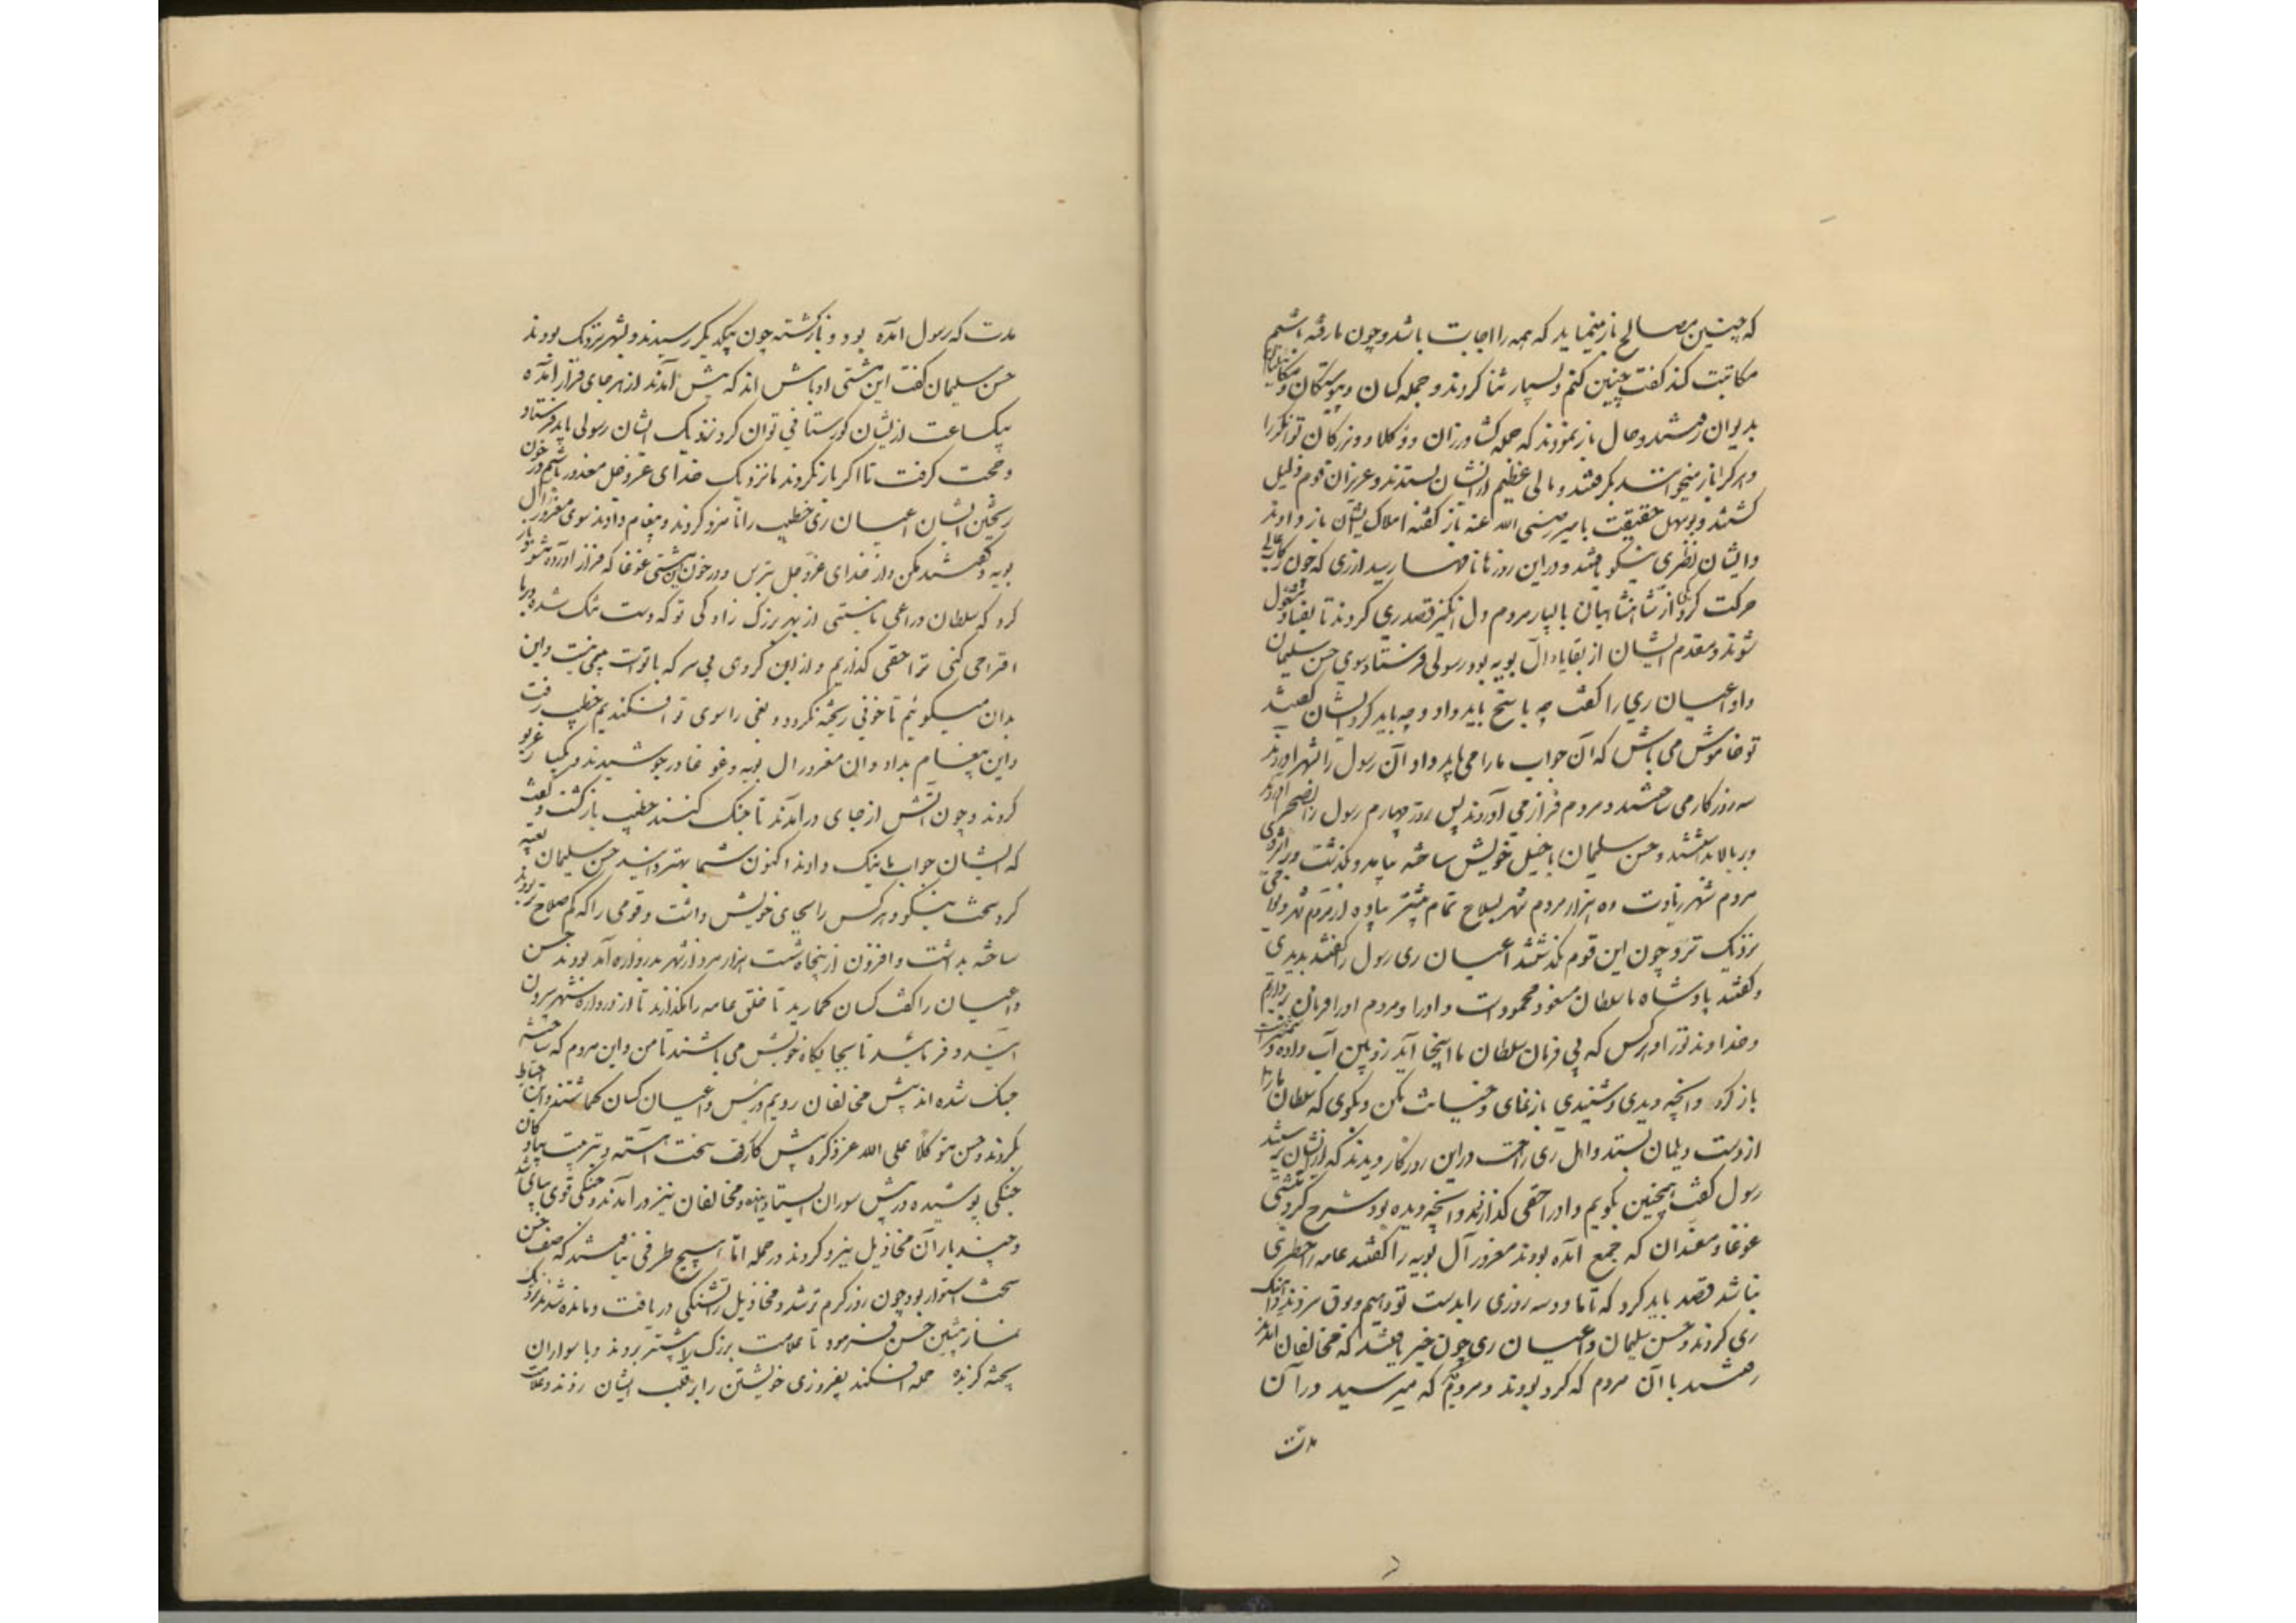 که چنین مصالح باز مینماید که همه را اجابت باشد و چون ما رفته باشیم
مکاتبت کند گفت چنین کنم و بسیار ثنا کردند و جمله کسان و پیوستکان و
بدیوان رفتند و حال باز نمودند که جمله کشاورزان و وکلا و بزرکان توانکر را
و هر کرا باز میخواستند بکرفتند و مالی عظیم از ایشان بستدند و عزیزان قوم ذلیل
کشتند و بوسهل حقیقت با میر رضی الله عنه باز گفته املاک ایشان باز دادند
و ایشان نظری نیکو یافتند و در این روزها نامها رسید از ری که چون رکاب عالی
حرکت کرد یکی از شاهنشاهیان با بسیار مردم دل انکیز قصد ری کردند تا بفساد مشغول
شوند و مقدم ایشان از بقایاء آل بویه بود رسولی فرستاد سوی حسن سلیمان
و او اعیان ری را گفت چه پاسخ باید داد و چه باید کرد ایشان گفتند
تو خاموش می باش که آن جواب ما را می باید داد آن رسول را بشهر آوردند
سه روز کار می ساختند و مردم فراز می آوردند پس روز چهارم رسول را بصحرا آوردند
و بر بالا بداشتند و حسن سلیمان با خیل خویش ساخته بیامد و بگذشت و بر اثر وی
مردم شهر زیادت ده هزار مردم شهر بسلاح تمام بیشتر پیاده از مردم شهر و نواحی
نزدیک تر و چون این قوم بگذشتند اعیان ری رسول را گفتند بدیدی
و گفتند پادشاه ما سلطان مسعود محمود است و او را و مردم او را فرمان برداریم
و خداوند تو را و هر کس که بی فرمان سلطان ما اینجا آید زوبین آب داده و شمشیر است
باز کرد و آنچه دیدی و شنیدی باز نمای و خیانت مکن و بکوی که سلطان ما را
از دست دیلمان بستد و اهل ری راحت در این روزکار دیدند که از ایشان برستند
رسول گفت همچنین بکویم و او را حقی گذارند و آنچه دیده بود شرح کرد مشتی
غوغا و مفسدان که جمع آمده بودند مغرور آل بویه را گفتند عامه را خطری
نباشد قصد باید کرد که تا ما دو سه روزی را بدست تو دهیم و بوق بزدند و آهنک
ری کردند و حسن سلیمان و اعیان ری چون خبر یافتند که مخالفان آمدند
رفتند با آن مردم که کرد بودند و مردم که میرسید در آن
مدت
مدت که رسول آمده بود و باز کشته چون بیکدیکر رسیدند و بشهر نزدیک بودند
حسن سلیمان گفت این مشتی اوباش اند که پیش آمدند از هر جای فراز آمده
بیکساعت از ایشان کورستانی توان کرد نزدیک ایشان رسولی باید فرستاد
و حجت کرفت تا اکر باز نکردند ما نزدیک خدای عز و جل معذور باشیم در خون
ریختن ایشان اعیان ری خطیب را نامزد کردند و پیغام دادند سوی مغرور آل
بویه و گفتند مکن و از خدای عز و جل بترس و در خون این مشتی غوغا که فراز آورده مشو و باز
کرد که سلطان و راعی ما نیستی از بهر بزرک زادکی تو که دست تنک شده و از ما
اقتراحی کنی ترا حقی گذاریم و از این کروهی بی سر که با تو است بیمی نیست و این
بدان میکوئیم تا خونی ریخته نکردد و بغی را سوی تو افکندیم خطیب رفت
و این پیغام بداد و آن مغرور آل بویه و غوغا در جوشیدند و بیکبار غریو
کردند و چون آتش از جای در آمدند تا جنک کنند خطیب باز کشت و گفت
که ایشان جواب ما نیک دادند اکنون شما بهتر دانید حسن سلیمان تعبیه
کرد سخت نیکو و هر کس را بجای خویش داشت و قومی را که کم صلاح تر بودند
ساخته بداشت و افزون از پنجاه شست هزار مرد از شهر بدروازه آمد بودند حسن
و اعیان را گفت کسان گمارید تا خلق عامه را نگذارند تا از دروازه شهر بیرون
آیند و فرمائید تا بجایکاه خویش می باشند تا من و این مردم که ساخته
جنک شده اند پیش مخالفان رویم و رئیس و اعیان کسان گماشتند و این احتیاط
بکردند و حسن متوکلاً علی الله عز ذکره پیش کار رفت سخت آهسته و بترتیب پیادکان
جنکی پوشیده در پیش سواران ایستاده و مخالفان نیز در آمدند و جنکی قوی بپای شد
و چند بار آن مخاذیل نیرو کردند در حمله اما هیچ طرفی نیافتند که صف حسن
سخت استوار بود چون روز کرم تر شد و مخاذیل را تشنکی دریافت و مانده شدند نزدیک
نماز پیشین حسن فرمود تا علامت بزرک را پیشتر بردند و با سواران
پخته کزیده حمله افکند بفیروزی خویشتن را بر قلب ایشان زدند و علامت